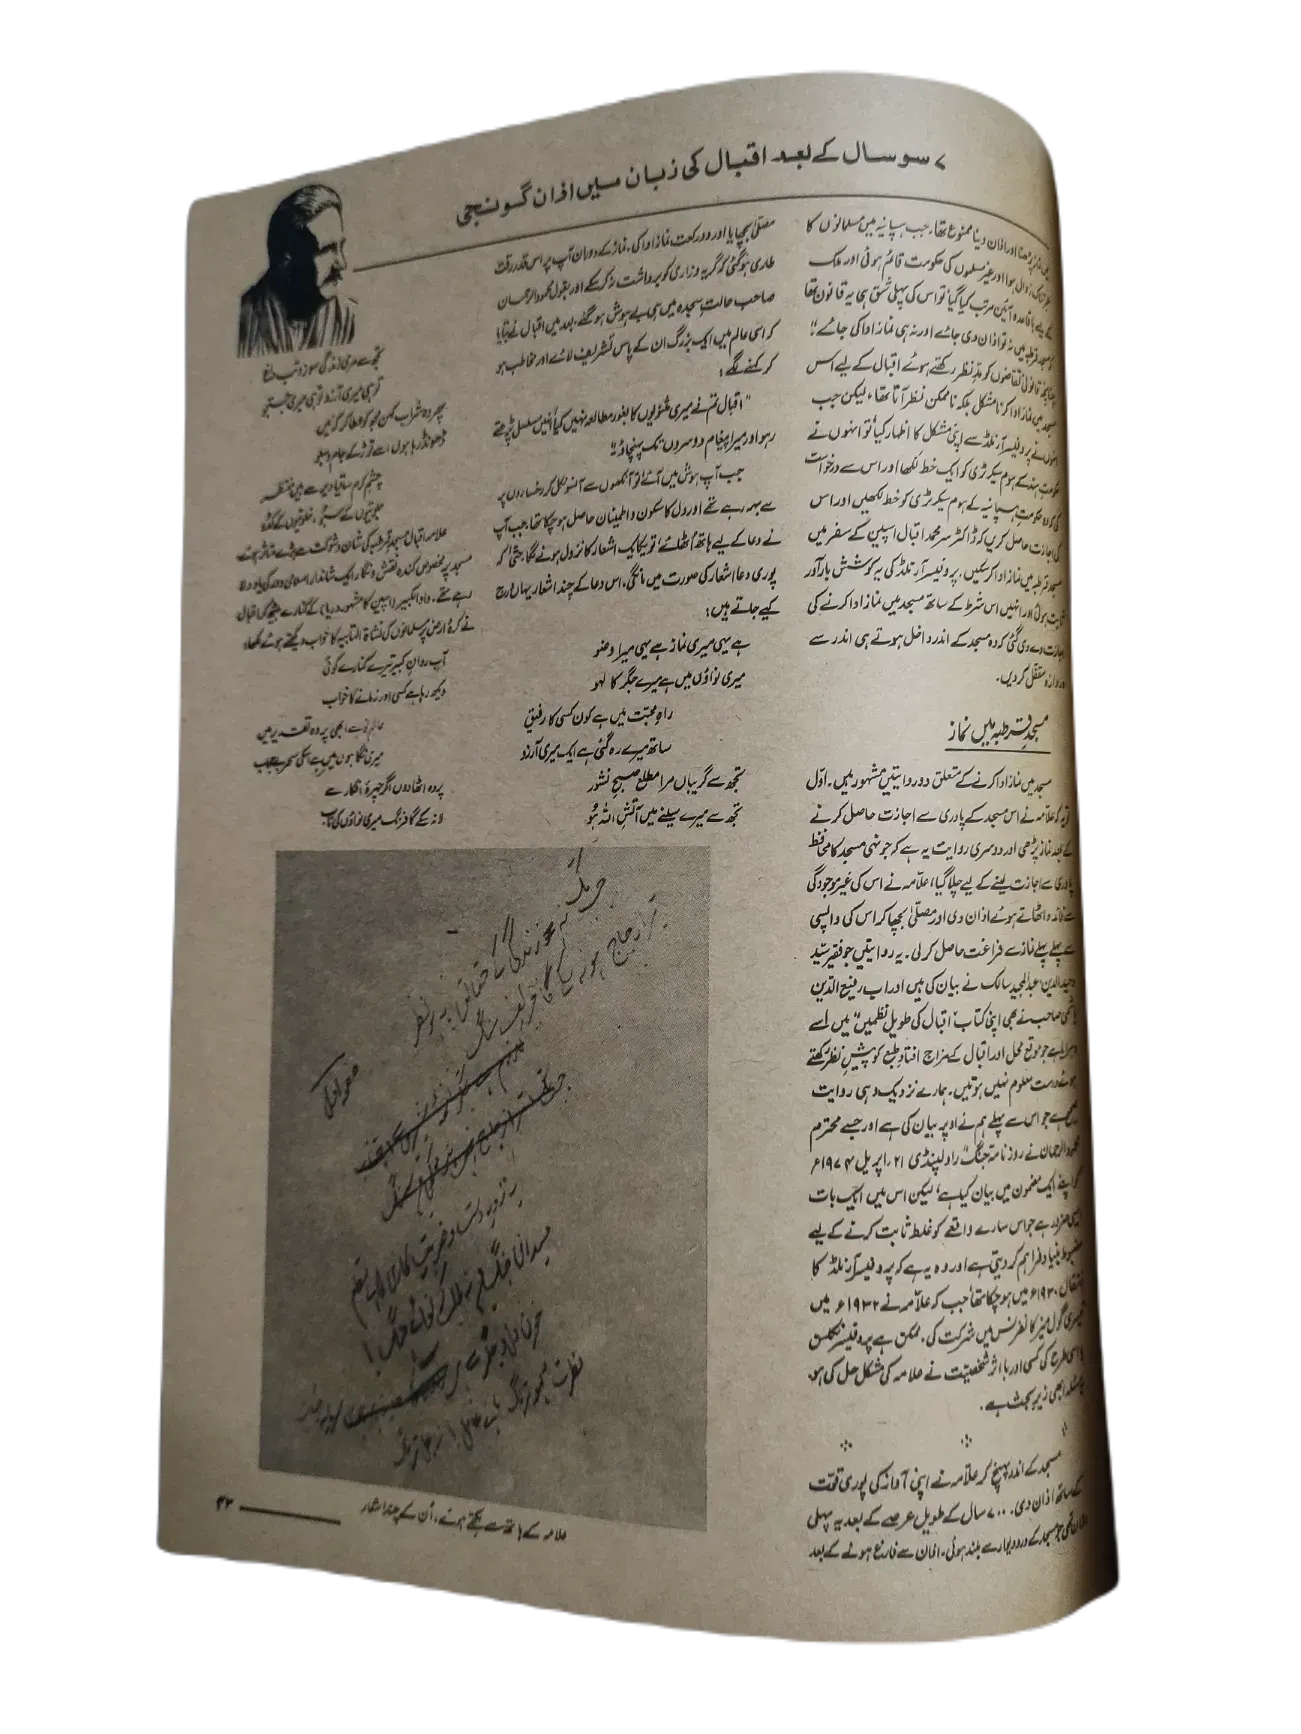 ۷ سو سال کے بعد اقبال کی زبان میں اذان گونجی
نماز پڑھنا اور اذان دینا ممنوع تھا۔ جب ہسپانیہ میں مسلمانوں کا
زوال ہوا اور غیر مسلموں کی حکومت قائم ہوئی اور ملک
کے لیے باقاعدہ آئین مرتب کیا گیا تو اس کی پہلی شق ہی یہ قانون تھا
مسجد قرطبہ میں نہ تو اذان دی جائے اور نہ ہی نماز ادا کی جائے"
چنانچہ قانونی تقاضوں کو مدِ نظر رکھتے ہوئے اقبال کے لیے اس
مسجد میں نماز ادا کرنا مشکل بلکہ ناممکن نظر آتا تھا، لیکن جب
انہوں نے پروفیسر آرنلڈ سے اپنی مشکل کا اظہار کیا تو انہوں نے
حکومتِ ہند کے ہوم سیکرٹری کو ایک خط لکھا اور اس سے درخواست
کی کہ وہ حکومتِ ہسپانیہ کے ہوم سیکرٹری کو خط لکھیں اور اس
کی اجازت حاصل کریں کہ ڈاکٹر سر محمد اقبال اسپین کے سفر میں
مسجد قرطبہ میں نماز ادا کر سکیں، پروفیسر آرنلڈ کی یہ کوشش بارآور
ثابت ہوئی اور انہیں اس شرط کے ساتھ مسجد میں نماز ادا کرنے کی
اجازت دے دی گئی کہ وہ مسجد کے اندر داخل ہوتے ہی اندر سے
دروازہ مقفل کر دیں۔
مسجدِ قرطبہ میں نماز
مسجد میں نماز ادا کرنے کے متعلق دو روایتیں مشہور ہیں۔ اوّل
تو یہ کہ علامہ نے اس مسجد کے پادری سے اجازت حاصل کرنے
کے بعد نماز پڑھی اور دوسری روایت یہ ہے کہ جونہی مسجد کا محافظ
پادری سے اجازت لینے کے لیے چلا گیا، علّامہ نے اس کی غیر موجودگی
سے فائدہ اٹھاتے ہوئے اذان دی اور مصلّیٰ بچھا کر اس کی واپسی
سے پہلے پہلے نماز سے فراغت حاصل کر لی۔ یہ روایتیں جو فقیر سیّد
وحید الدین، عبدالمجید سالک نے بیان کی ہیں اور اب رفیع الدّین
ہاشمی صاحب نے بھی اپنی کتاب "اقبال کی طویل نظمیں" میں اسے
جو موقع محل اور اقبال کے مزاج افتادِ طبع کو پیشِ نظر رکھتے
ہوئے درست معلوم نہیں ہوتیں۔ ہمارے نزدیک وہی روایت
صحیح ہے جو اس سے پہلے ہم نے اوپر بیان کی ہے اور جسے محترم
محمود الرحمان نے روزنامہ "جنگ" راولپنڈی ۲۱ اپریل ۱۹۷۴ء
کو اپنے ایک مضمون میں بیان کیا ہے، لیکن اس میں ایک بات
ایسی ضرور ہے جو اس سارے واقعے کو غلط ثابت کرنے کے لیے
مضبوط بنیاد فراہم کر دیتی ہے اور وہ یہ ہے کہ پروفیسر آرنلڈ کا
انتقال ۱۹۳۰ء میں ہو چکا تھا، جب کہ علاّمہ نے ۱۹۳۲ء میں
تیسری گول میز کانفرنس میں شرکت کی۔ ممکن ہے پروفیسر نکلسن
یا اسی طرح کی کسی اور با اثر شخصیّت نے علامہ کی مشکل حل کی ہو۔
یہ مسئلہ ابھی زیرِ بحث ہے۔
مسجد کے اندر پہنچ کر علّامہ نے اپنی آواز کی پوری قوت
کے ساتھ اذان دی۔ ۷۰۰ سال کے طویل عرصے کے بعد یہ پہلی
اذان تھی جو مسجد کے در و دیوار سے بلند ہوئی۔ اذان سے فارغ ہونے کے بعد
مصلّیٰ بچھایا اور دو رکعت نماز ادا کی۔ نماز کے دوران آپ پر اس قدر رقت
طاری ہو گئی کہ گریہ و زاری کو برداشت نہ کر سکے اور بقول محمود الرحمان
صاحب حالتِ سجدہ میں ہی بے ہوش ہو گئے۔ بعد میں اقبال نے بتایا
کہ اسی عالم میں ایک بزرگ ان کے پاس تشریف لائے اور مخاطب ہو
کر کہنے لگے:
"اقبال تم نے میری مثنویوں کا بغور مطالعہ نہیں کیا انہیں مسلسل پڑھتے
رہو اور میرا پیغام دوسروں تک پہنچاؤ"
جب آپ ہوش میں آئے تو آنکھوں سے آنسو نکل کر رخساروں پر
سے بہہ رہے تھے اور دل کا سکون و اطمینان حاصل ہو چکا تھا، جب آپ
نے دعا کے لیے ہاتھ اُٹھائے تو یکایک اشعار کا نزول ہونے لگا، حتیٰ کہ
پوری دعا اشعار کی صورت میں مانگی۔ اس دعا کے چند اشعار یہاں درج
کیے جاتے ہیں:
ہے یہی میری نماز ہے یہی میرا وضو
میری نواؤں میں ہے میرے جگر کا لہو
راہِ محبّت میں ہے کون کسی کا رفیق
ساتھ میرے رہ گئی ہے ایک میری آرزو
تجھ سے گریباں مرا مطلع صبحِ نشور
تجھ سے میرے سینے میں آتشِ اللہ ہُو
تجھ سے مری زندگی سوز و تب و داغ
تو ہی میری آرزو تو ہی میری جستجو
پھر وہ شراب کہن مجھ کو عطا کر کہ میں
ڈھونڈ رہا ہوں اسے توڑ کے جام و سبو
چشمِ کرم ساقیا دیر سے ہیں منتظر
جلوتیوں کے سبو، خلوتیوں کے کدو
علامہ اقبال مسجدِ قرطبہ کی شان و شوکت سے بڑے متاثر ہوئے
مسجد پر مخصوص کندہ نقش و نگار، ایک شاندار اسلامی دور کی یاد دلا
رہے تھے۔ واد الکبیر (اسپین کا مشہور دریا) کے کنارے بیٹھے اقبال
نے کرۂ ارض پر مسلمانوں کی نشاۃ الثانیہ کا خواب دیکھتے ہوئے لکھا:
آب روانِ کبیر تیرے کنارے کوئی
دیکھ رہا ہے کسی اور زمانے کا خواب
عالمِ نو ہے ابھی پردہ تقدیر میں
میری نگاہوں میں ہے اسکی سحر بے حجاب
پردہ اٹھا دوں اگر چہرۂ افکار سے
لا نہ سکے گا فرنگ میری نواؤں کی تاب
جب تک نہ زندگی کے حقائق پہ ہو نظر
تیرا زجاج ہو نہ سکے گا حریفِ سنگ
محمد اقبال
یہ زورِ دست و ضربتِ کاری کا ہے مقام
میدانِ جنگ میں نہ طلب کر نوائے چنگ!
خونِ دل و جگر سے ہے سرمایۂ حیات
فطرت لہو ترنگ ہے غافل! نہ جل ترنگ
علامہ کے ہاتھ سے لکھے ہوئے، اُن کے چند اشعار
۴۳